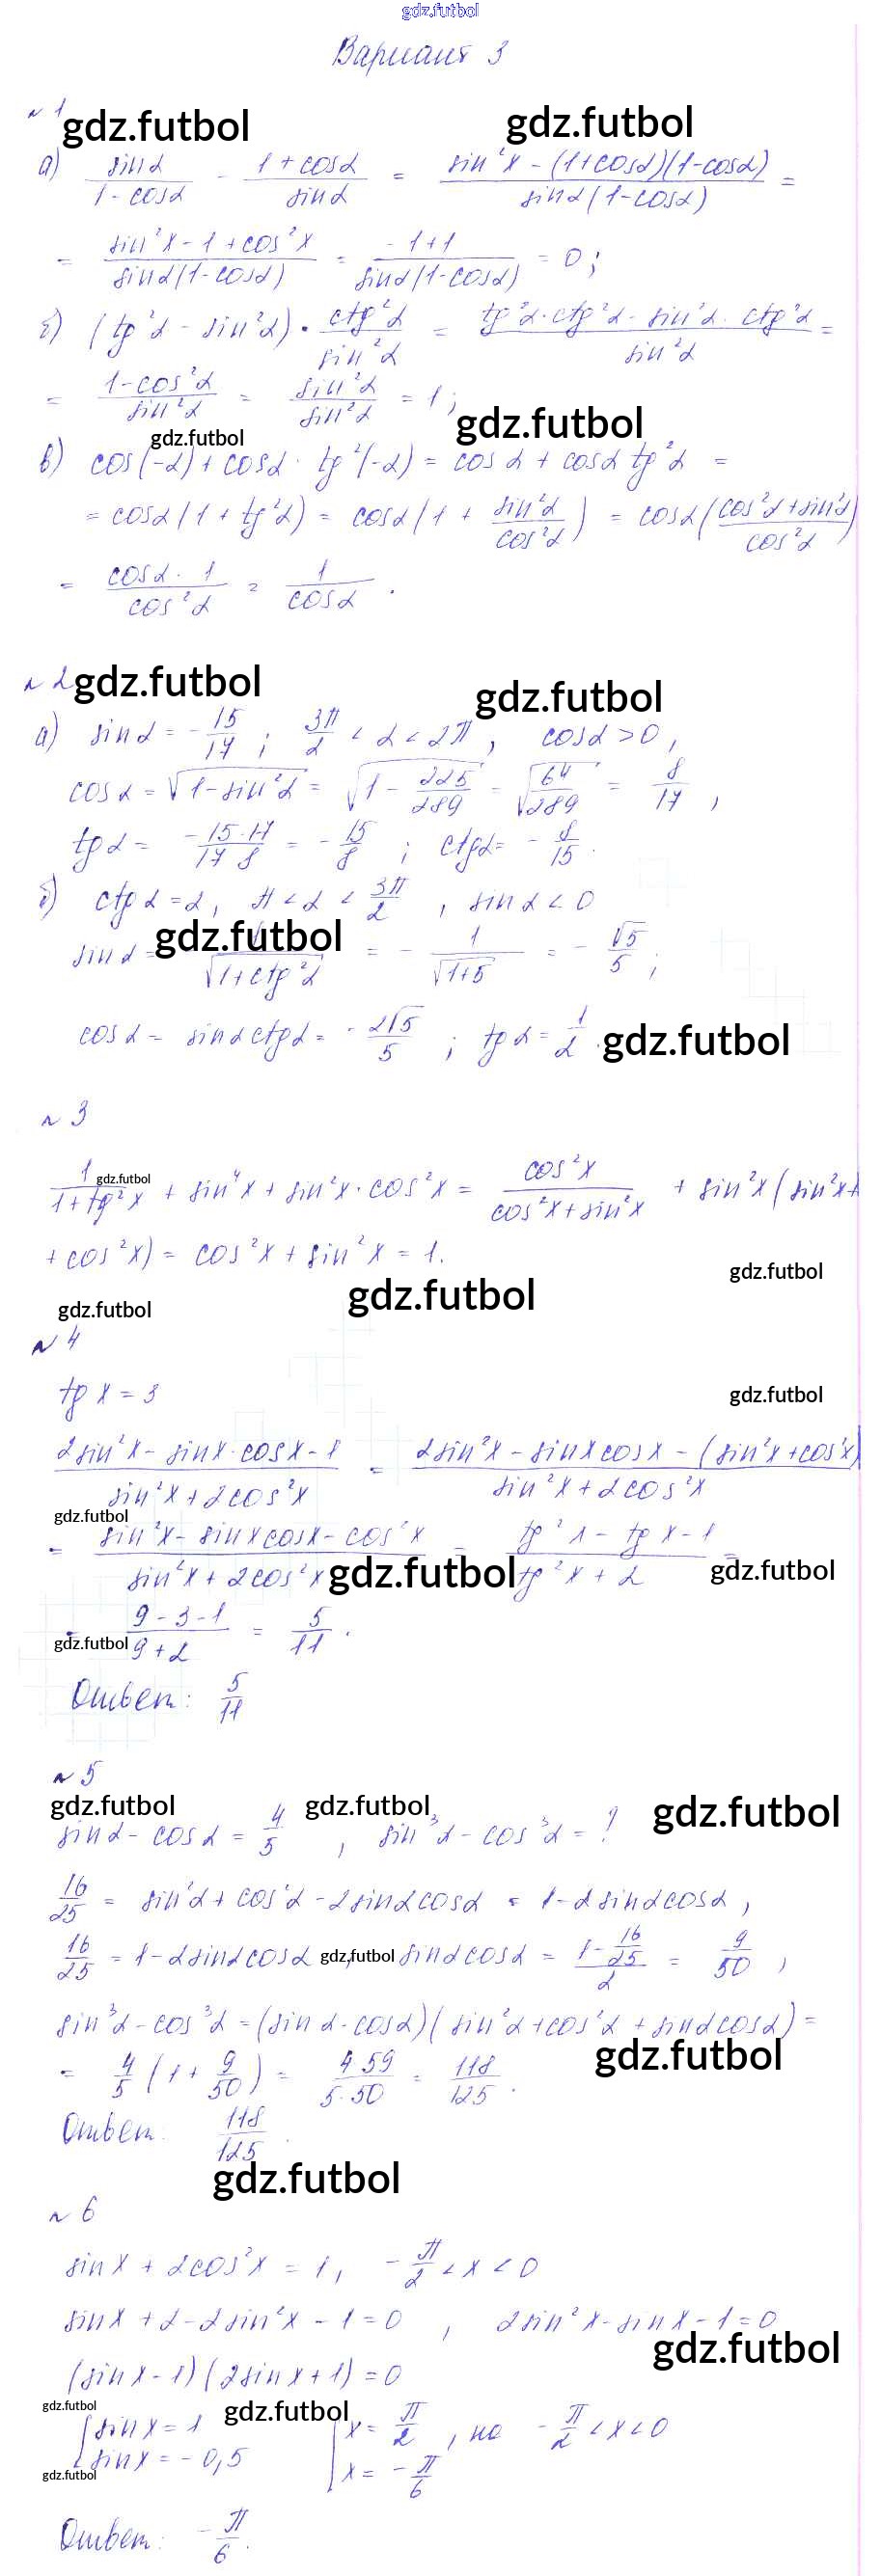 gdz.futbol
Вариант 3
№ 1
gdz.futbol gdz.futbol
а) sin α / (1 - cos α) - (1 + cos α) / sin α = (sin²x - (1 + cos α)(1 - cos α)) / (sin α (1 - cos α)) =
= (sin²x - 1 + cos²x) / (sin α (1 - cos α)) = (-1 + 1) / (sin α (1 - cos α)) = 0;
б) (tg²α - sin²α) · ctg²α / sin²α = (tg²α · ctg²α - sin²α · ctg²α) / sin²α =
= (1 - cos²α) / sin²α = sin²α / sin²α = 1;
gdz.futbol gdz.futbol
в) cos(-α) + cos α · tg²(-α) = cos α + cos α tg²α =
= cos α (1 + tg²α) = cos α (1 + sin²α / cos²α) = cos α ((cos²α + sin²α) / cos²α)
= (cos α · 1) / cos²α = 1 / cos α .
№ 2 gdz.futbol gdz.futbol
а) sin α = - 15/17 ; 3π/2 < α < 2π , cos α > 0 ,
cos α = √(1 - sin²α) = √(1 - 225/289) = √(64/289) = 8/17 ,
tg α = (-15 · 17) / (17 8) = - 15/8 ; ctg α = - 8/15 .
б) ctg α = 2, π < α < 3π/2 , sin α < 0
gdz.futbol
sin α = 1 / √(1 + ctg²α) = - 1 / √(1+5) = - √5/5 ;
cos α = sin α ctg α = - 2√5/5 ; tg α = 1/2 . gdz.futbol
№ 3
gdz.futbol
1 / (1 + tg²x) + sin⁴x + sin²x · cos²x = cos²x / (cos²x + sin²x) + sin²x (sin²x +
+ cos²x) = cos²x + sin²x = 1.
gdz.futbol
gdz.futbol gdz.futbol
№ 4
tg x = 3
gdz.futbol
(2sin²x - sin x · cos x - 1) / (sin²x + 2cos²x) = (2sin²x - sin x cos x - (sin²x + cos²x)) / (sin²x + 2cos²x)
gdz.futbol
= (sin²x - sin x cos x - cos²x) / (sin²x + 2cos²x) = (tg²x - tg x - 1) / (tg²x + 2) =
gdz.futbol gdz.futbol
= (9 - 3 - 1) / (9 + 2) = 5/11 .
gdz.futbol
Ответ: 5/11
№ 5
gdz.futbol gdz.futbol gdz.futbol
sin α - cos α = 4/5 , sin³α - cos³α = ?
16/25 = sin²α + cos²α - 2sin α cos α = 1 - 2 sin α cos α ,
16/25 = 1 - 2sin α cos α gdz.futbol sin α cos α = (1 - 16/25) / 2 = 9/50 ,
sin³α - cos³α = (sin α - cos α)(sin²α + cos²α + sin α cos α) =
gdz.futbol
= 4/5 (1 + 9/50) = (4 · 59) / (5 · 50) = 118/125 .
Ответ: 118/125 .
gdz.futbol
№ 6
sin x + 2cos²x = 1, - π/2 < x < 0
sin x + 2 - 2sin²x - 1 = 0 , 2sin²x - sin x - 1 = 0
gdz.futbol
(sin x - 1)(2sin x + 1) = 0
gdz.futbol gdz.futbol
[sin x = 1 [x = π/2 , но - π/2 < x < 0
sin x = - 0,5 x = - π/6
gdz.futbol
Ответ: - π/6 .